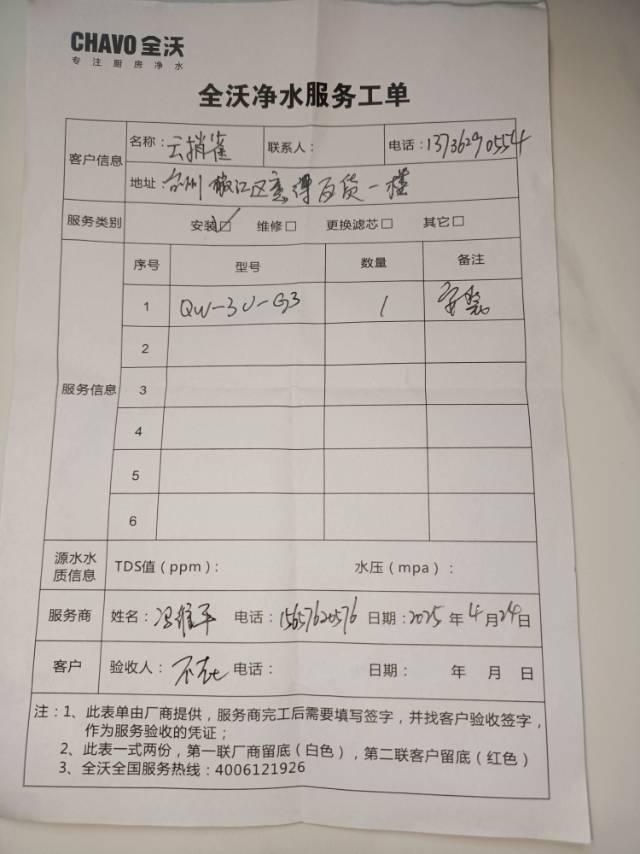 CHAVO 全沃
专注厨房净水
全沃净水服务工单
客户信息 名称：云捎雀 联系人： 电话：13736290554
地址：台州椒江区意得百货一楼
服务类别 安装☑ 维修□ 更换滤芯□ 其它□
服务信息 序号 型号 数量 备注
1 QW-3U-G3 1 安装
2
3
4
5
6
源水水质信息 TDS值（ppm）： 水压（mpa）：
服务商 姓名：冯维平 电话：15657620576 日期：2025年4月24日
客户 验收人：不在 电话： 日期： 年 月 日
注：1、此表单由厂商提供，服务商完工后需要填写签字，并找客户验收签字，
作为服务验收的凭证；
2、此表一式两份，第一联厂商留底（白色），第二联客户留底（红色）
3、全沃全国服务热线：4006121926